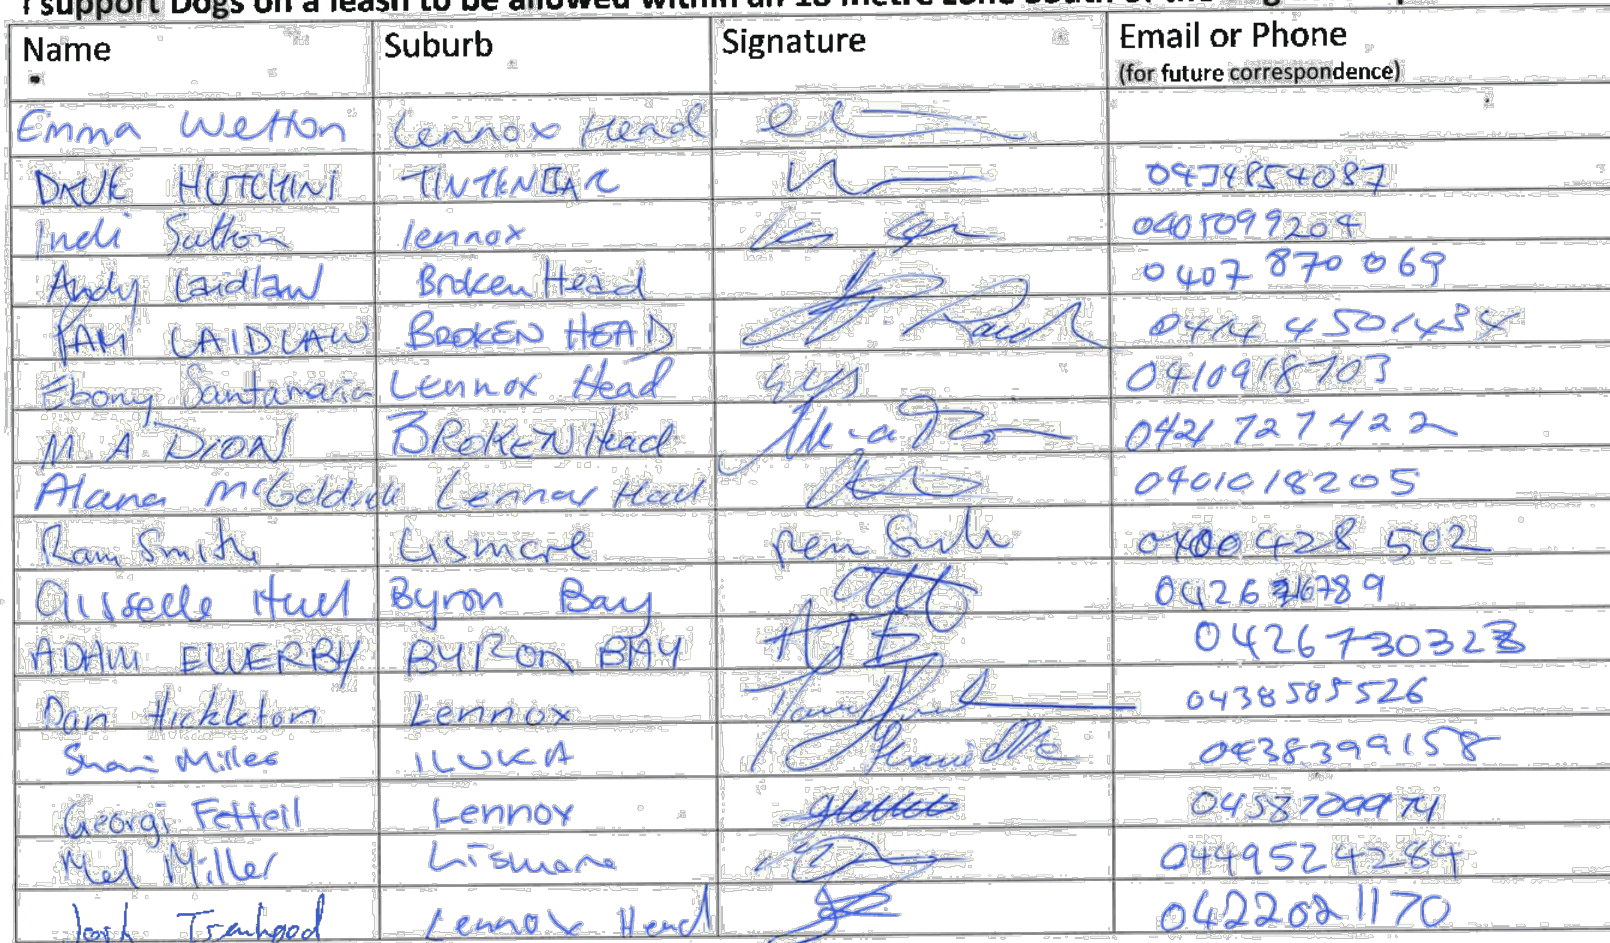 I support Dogs on a leash to be allowed within an 18 metre zone South of the
Name Suburb Signature Email or Phone
(for future correspondence)
Emma Wetton Lennox Head
DAVE HUTCHINI TINTENBAR 0434854087
Indi Sutton lennox 0405099204
Andy Laidlaw Broken Head 0407 870 069
PAM LAIDLAW BROKEN HEAD 0414 4501434
Ebony Santamaria Lennox Head 0410918703
M. A. DION BROKEN Head 0421 727 422
Alana McGoldrick Lennox Head 0401018205
Ram Smith Lismore 0400 428 502
Byron Bay
ADAM ELLERBY BYRON BAY 0426730323
Dan Hickleton Lennox 0438585526
Miles ILUKA 0438399158
Georgi Fetteil Lennox 0458709974
Mel Miller Lismore 0449524284
Josh Lennox Head 0422021170